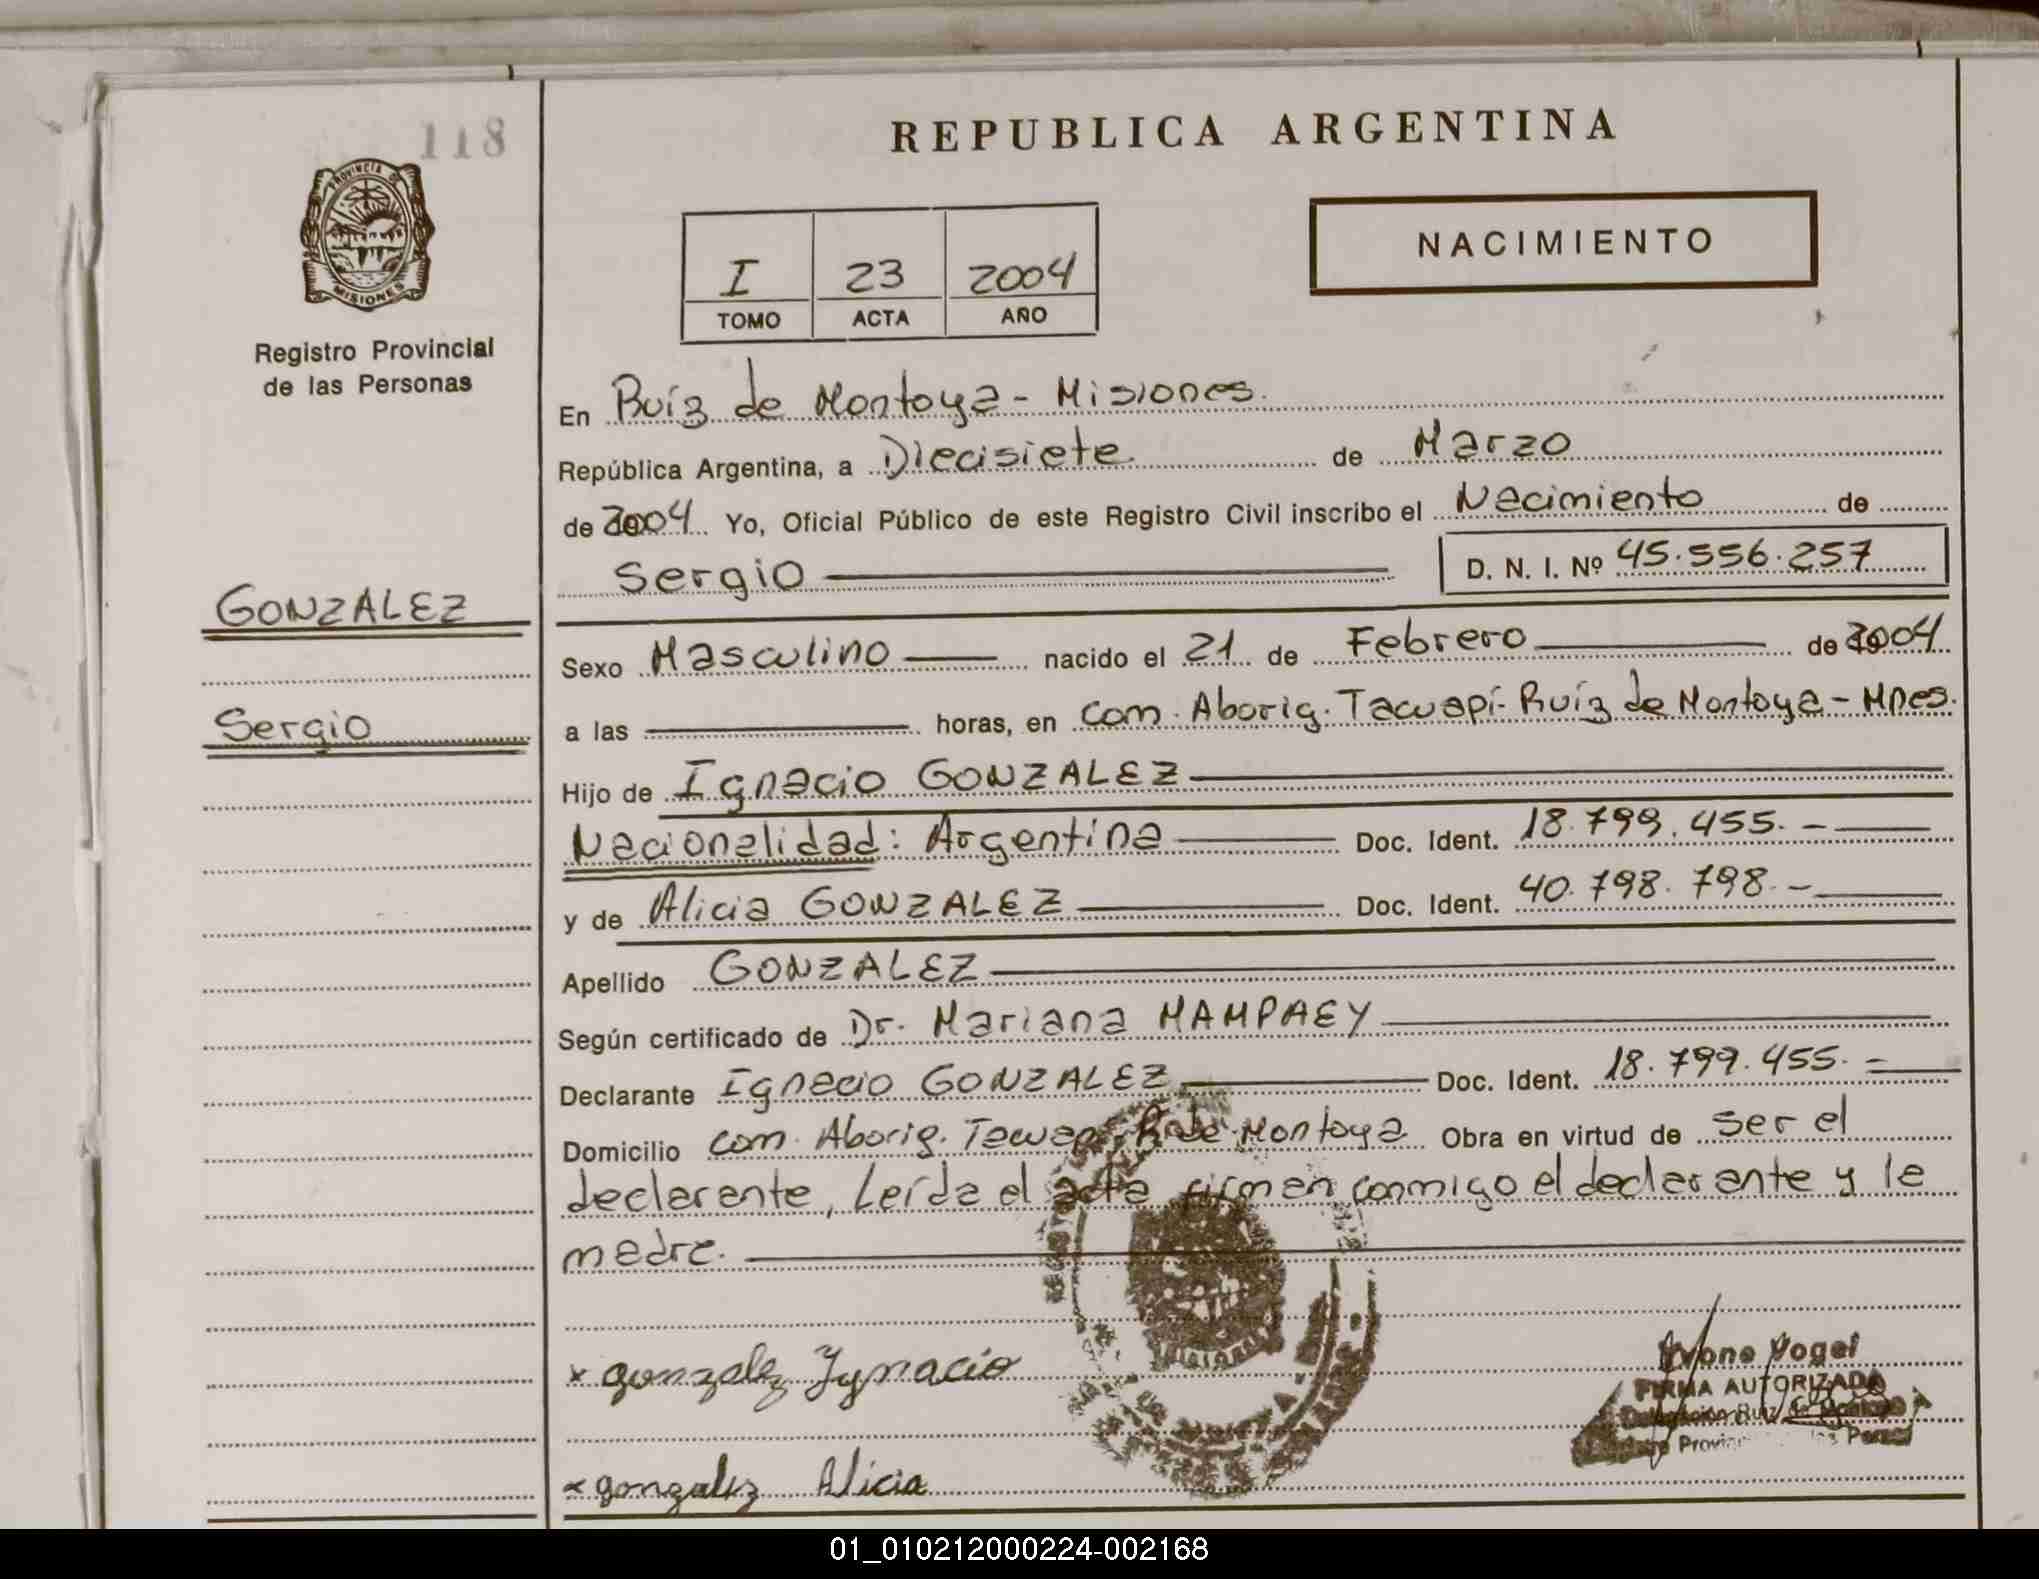 118
PROVINCIA DE
MISIONES
Registro Provincial
de las Personas
GONZALEZ
Sergio
REPUBLICA ARGENTINA
I 23 2004
TOMO ACTA AÑO
NACIMIENTO
En Ruíz de Montoya - Misiones.
República Argentina, a Diecisiete de Marzo
de 2004 Yo, Oficial Público de este Registro Civil inscribo el Nacimiento de
Sergio D. N. I. Nº 45.556.257
Sexo Masculino nacido el 21 de Febrero de 2004
a las horas, en Com. Aborig. Tacuapí- Ruíz de Montoya - Mnes.
Hijo de Ignacio GONZALEZ
Nacionalidad: Argentina Doc. Ident. 18.799.455.-
y de Alicia GONZALEZ Doc. Ident. 40.798.798.-
Apellido GONZALEZ
Según certificado de Dr. Mariana MAMPAEY
Declarante Ignacio GONZALEZ Doc. Ident. 18.799.455.-
Domicilio com. Aborig. Tacuapí R. de Montoya Obra en virtud de ser el
declarante, Leída el acta firman conmigo el declarante y la
madre.
x gonzalez Ygnacio
x gonzalez Alicia
Yvone Vogel
FIRMA AUTORIZADA
Delegación Ruiz de Montoya
Provin las Pers
01_010212000224-002168